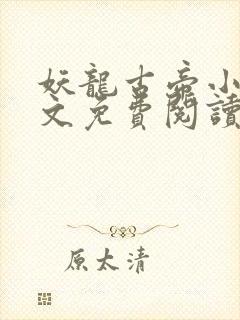 妖龍古帝小
文免費閱讀
原太清